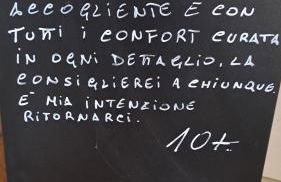 ACCOGLIENTE E CON
TUTTI I CONFORT CURATA
IN OGNI DETTAGLIO, LA
CONSIGLIEREI A CHIUNQUE.
E' MIA INTENZIONE
RITORNARCI.
10+